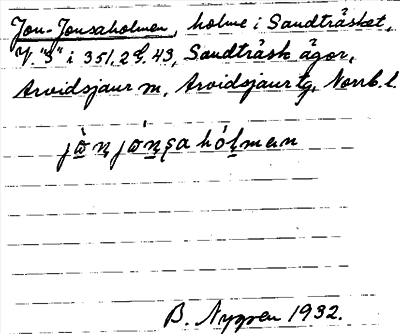 Jon-Jonsaholmen, holme i Sandträsket,
V. "S" i 351, 2 d, 43, Sandträsk ägor,
Arvidsjaur sn, Arvidsjaur tg, Norrb. l.
jò̱n̥ jó̱n̥sahól̥man
B. Nygren 1932.